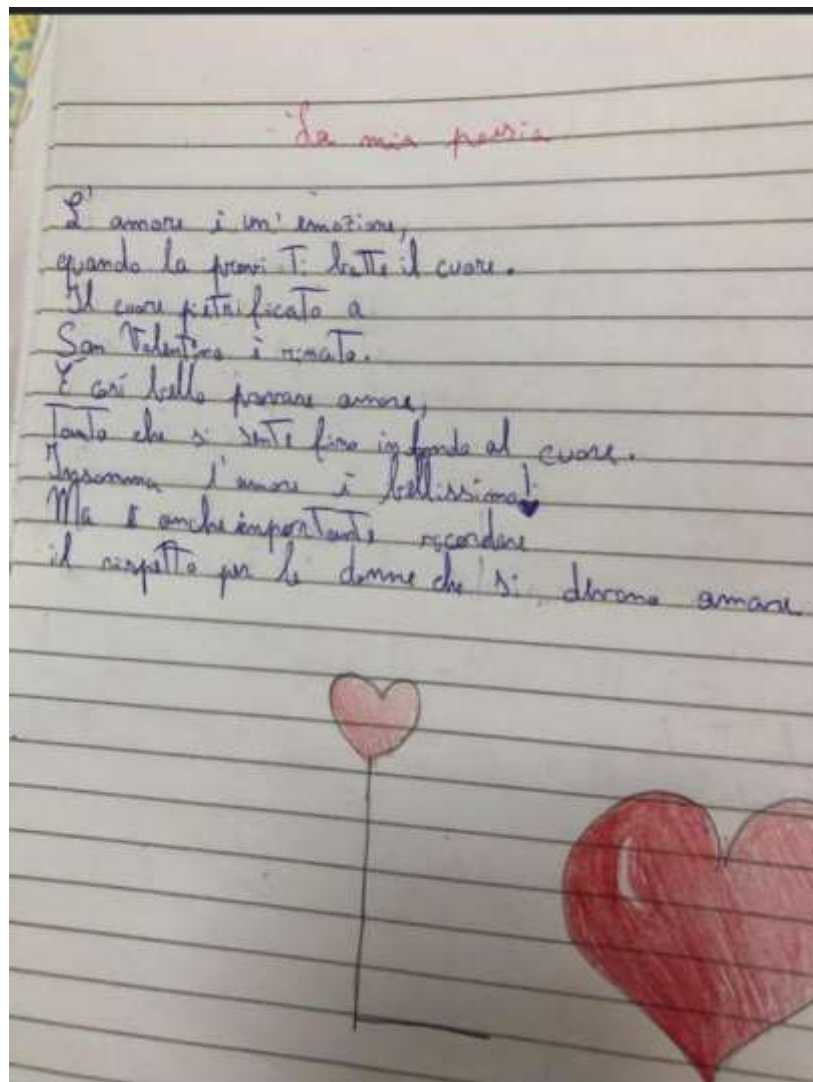 La mia poesia
L'amore è un'emozione,
quando la provi ti batte il cuore.
Il cuore pietrificato a
San Valentino è rinato.
È così bello provare amore,
Tanto che si sente fino infondo al cuore.
Insomma l'amore è bellissimo!
Ma è anche importante ricordare
il rispetto per le donne che si devono amare